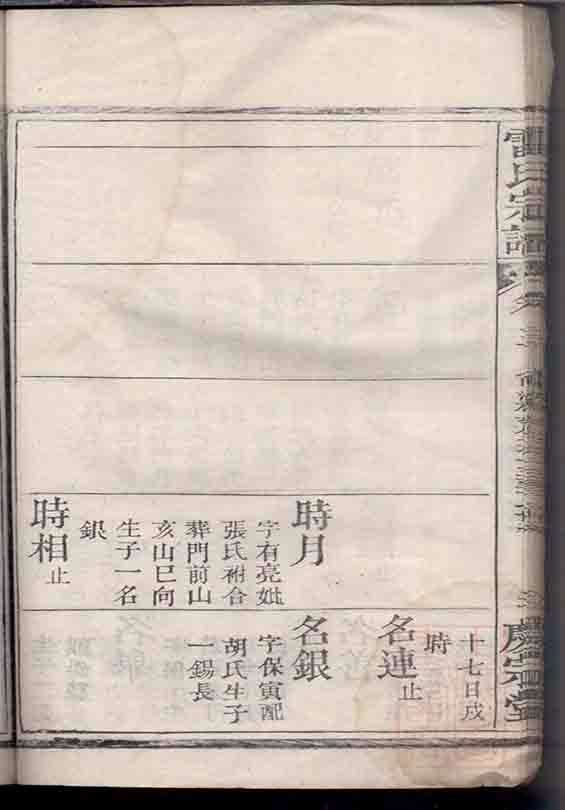 雷氏宗譜
卷
慶宗堂
時月
字有亮妣
張氏祔合
葬門前山
亥山巳向
生子一名
銀
時相止
十七日戌
時
名連止
名銀
字保寅配
胡氏生子
一錫長